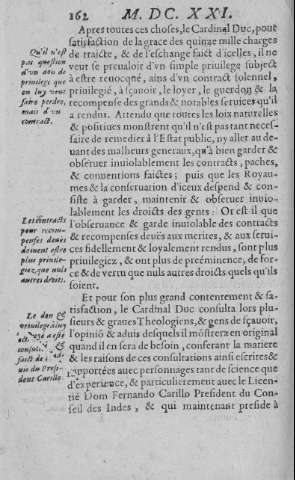 162 M. DC. XXI.
Apres toutes ces choses, le Cardinal Duc, pour
satisfaction de la grace des quinze mille charges
de traicte, & de l'eschange faict d'icelles, il ne
veut se preualoir d'vn simple priuilege subject
à estre reuoqué, ains d'vn contract solennel,
priuilegié, à sçauoir, le loyer, le guerdon & la
recompense des grands & notables seruices qu'il
a rendus. Attendu que toutes les loix naturelles
& positiues monstrent qu'il n'est pas tant neces-
saire de remedier à l'Estat public, ny aller au de-
uant des malheurs generaux, qu'à bien garder &
obseruer inuiolablement les contracts, paches,
& conuentions faictes; puis que les Royau-
mes & la conseruation d'iceux despend & con-
siste à garder, maintenir & obseruer inuio-
lablement les droicts des gents: Or est-il que
l'obseruance & garde inuiolable des contracts
& recompenses deuës aux merites, & aux serui-
ces fidellement & loyalement rendus, sont plus
priuilegiez, & ont plus de preéminence, de for-
ce & de vertu que nuls autres droicts quels qu'ils
soient.
Et pour son plus grand contentement & sa-
tisfaction, le Cardinal Duc consulta lors plu-
sieurs & graues Theologiens, & gens de sçauoir,
l'opiniõ & aduis desquels il mõstrera en original
quand il en sera de besoin, conferant la matiere
& les raisons de ces consultations ainsi escrites &
rapportées auec personnages tant de science que
d'experience, & particulierement auec le Licen-
tié Dom Fernando Carillo President du Con-
seil des Indes, & qui maintenant preside à
Qu'il n'est
pas question
d'vn don de
priuilege que
on luy veut
faire perdre,
mais d'vn
contract.
Les contracts
pour recom-
penses deuës
doiuent estre
plus priuile-
giez, que nuls
autres droits.
Le don &
priuilege ainsi